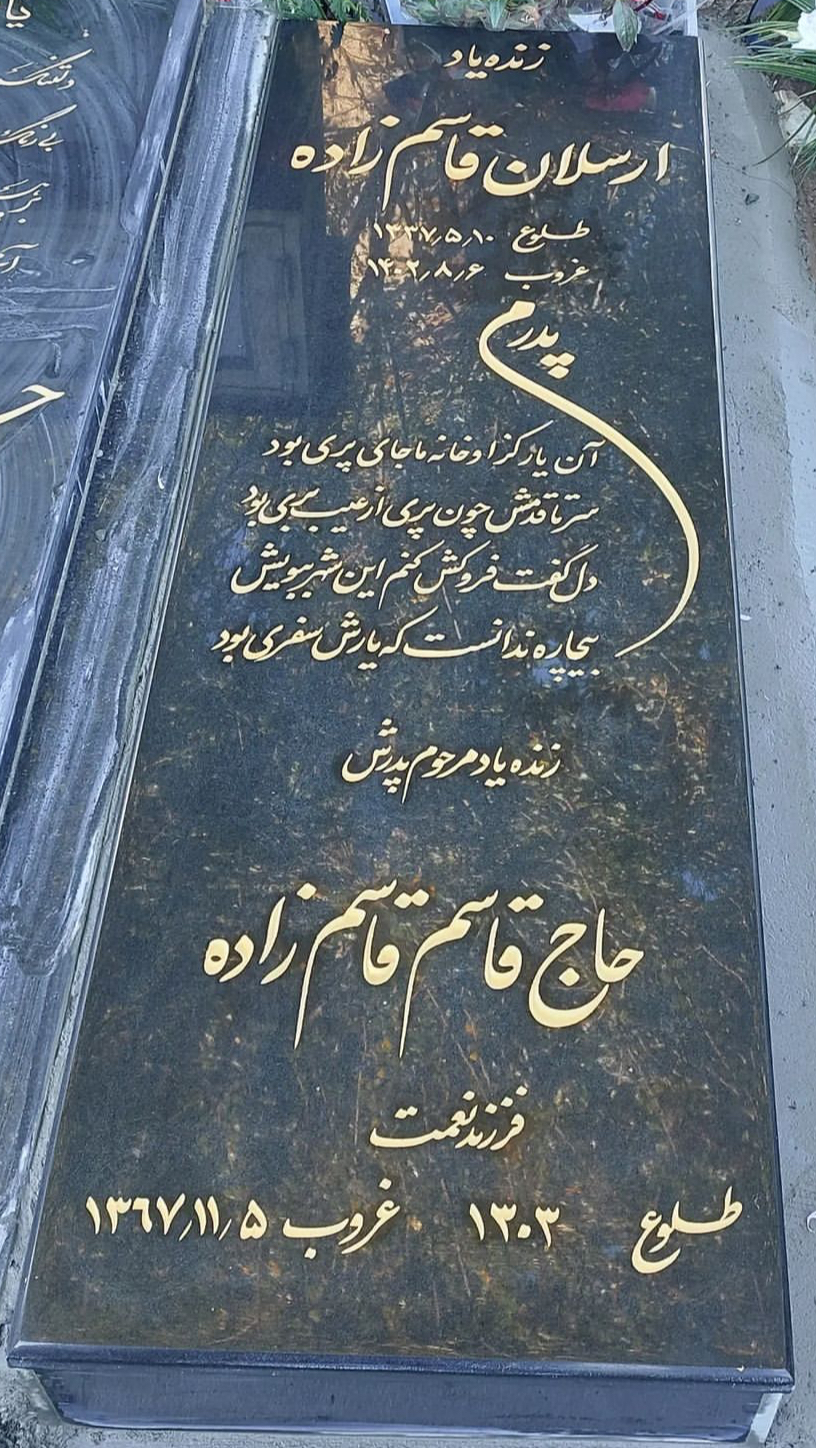 زنده یاد
ارسلان قاسم زاده
طلوع ۱۳۳۷٫۵٫۱۰
غروب ۱۴۰۲٫۸٫۶
پدرم
آن یار کزاو خانه ما جای پری بود
سر تا قدمش چون پری از عیب بری بود
دل گفت فروکش کنم این شهر ببویش
بیچاره ندانست که یارش سفری بود
زنده یاد مرحوم پدرش
حاج قاسم قاسم زاده
فرزند نعمت
طلوع ۱۳۰۳ غروب ۱۳۶۷٫۱۱٫۵